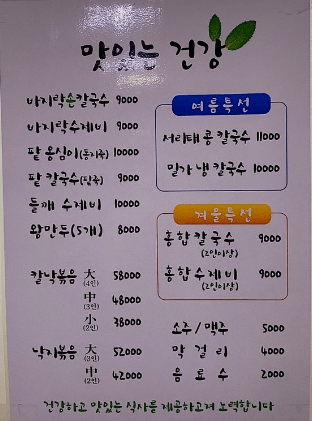 맛있는 건강
바지락손칼국수 9000
바지락수제비 9000
팥 옹심이(동지죽) 10000
팥 칼국수(팥죽) 9000
들깨 수제비 10000
왕만두(5개) 8000
칼낙볶음 大(4인) 58000
中(3인) 48000
小(2인) 38000
낙지볶음 大(3인) 52000
中(2인) 42000
여름특선
서리태 콩 칼국수 11000
밀가 냉 칼국수 10000
겨울특선
홍합 칼국수 9000
(2인이상)
홍합 수제비 9000
(2인이상)
소주/맥주 5000
막걸리 4000
음료수 2000
건강하고 맛있는 식사를 제공하고저 노력합니다